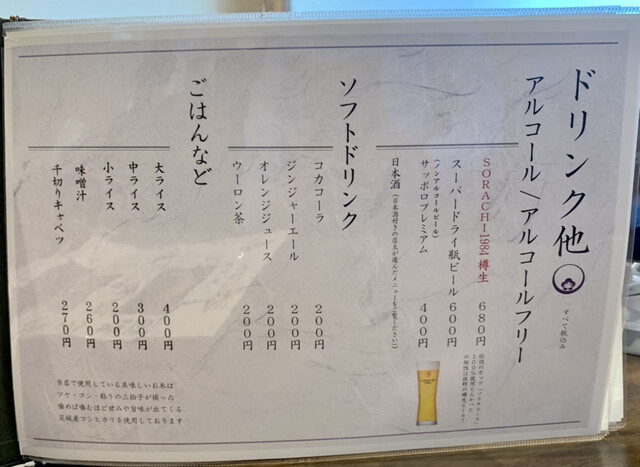 ドリンク他
すべて税込み
アルコール/アルコールフリー
SORACHI1984 樽生 680円
伝説のホップ「ソラチエース」
100%使用とんかつと
の相性は抜群の樽生ビール!
スーパードライ瓶ビール 600円
(ノンアルコールビール)
サッポロプレミアム 400円
日本酒(日本酒好きの店主が選んだメニューをご覧ください)
ソフトドリンク
コカコーラ 200円
ジンジャーエール 200円
オレンジジュース 200円
ウーロン茶 200円
ごはんなど
大ライス 400円
中ライス 300円
小ライス 200円
味噌汁 260円
千切りキャベツ 270円
当店で使用している美味しいお米は
ツヤ・コシ・粘りの三拍子が揃った
噛めば噛むほど甘みや旨味が出てくる
茨城産コシヒカリを使用しております